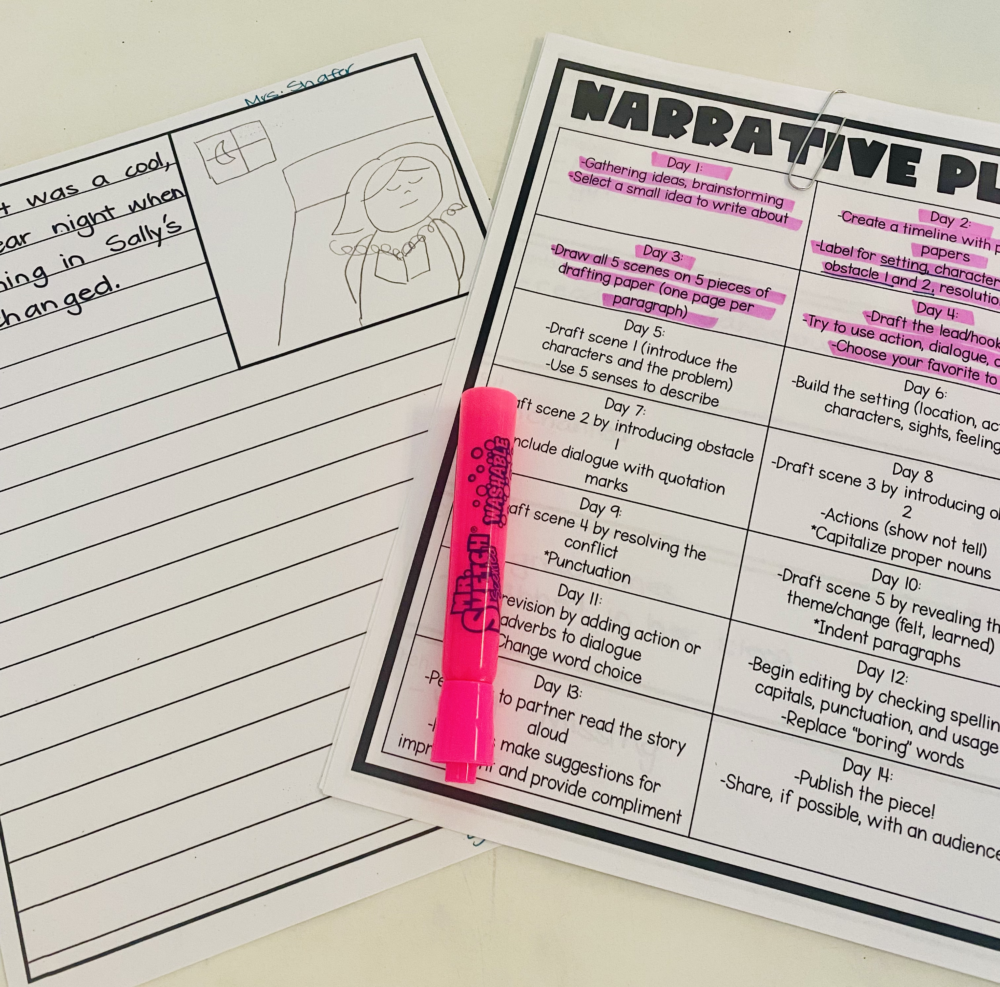 Mrs. Shafer
was a cool,
night when
in Sally's
changed.
NARRATIVE
Day 1:
-Gathering ideas, brainstorming
-Select a small idea to write about
Day 2:
-Create a timeline with
papers
-Label for setting, character
obstacle 1 and 2, resolutio
Day 3:
-Draw all 5 scenes on 5 pieces of
drafting paper (one page per
paragraph)
Day 4:
-Draft the lead/hook
-Try to use action, dialogue,
-Choose your favorite to
Day 5:
-Draft scene 1 (introduce the
characters and the problem)
-Use 5 senses to describe
Day 6:
-Build the setting (location,
characters, sights, feeling
Day 7:
scene 2 by introducing obstacle
1
nclude dialogue with quotation
marks
Day 8
-Draft scene 3 by introducing
2
-Actions (show not tell)
*Capitalize proper nouns
Day 9:
scene 4 by resolving the
conflict
*Punctuation
Day 10:
-Draft scene 5 by revealing
theme/change (felt, learned)
*Indent paragraphs
Day 11:
revision by adding action or
adverbs to dialogue
Change word choice
Day 12:
-Begin editing by checking spellin
capitals, punctuation, and usage
-Replace "boring" words
Day 13:
to partner read the story
aloud
make suggestions for
and provide compliment
Day 14:
-Publish the piece!
-Share, if possible, with an audience
MR. SKETCH®
Scented
WASHABLE